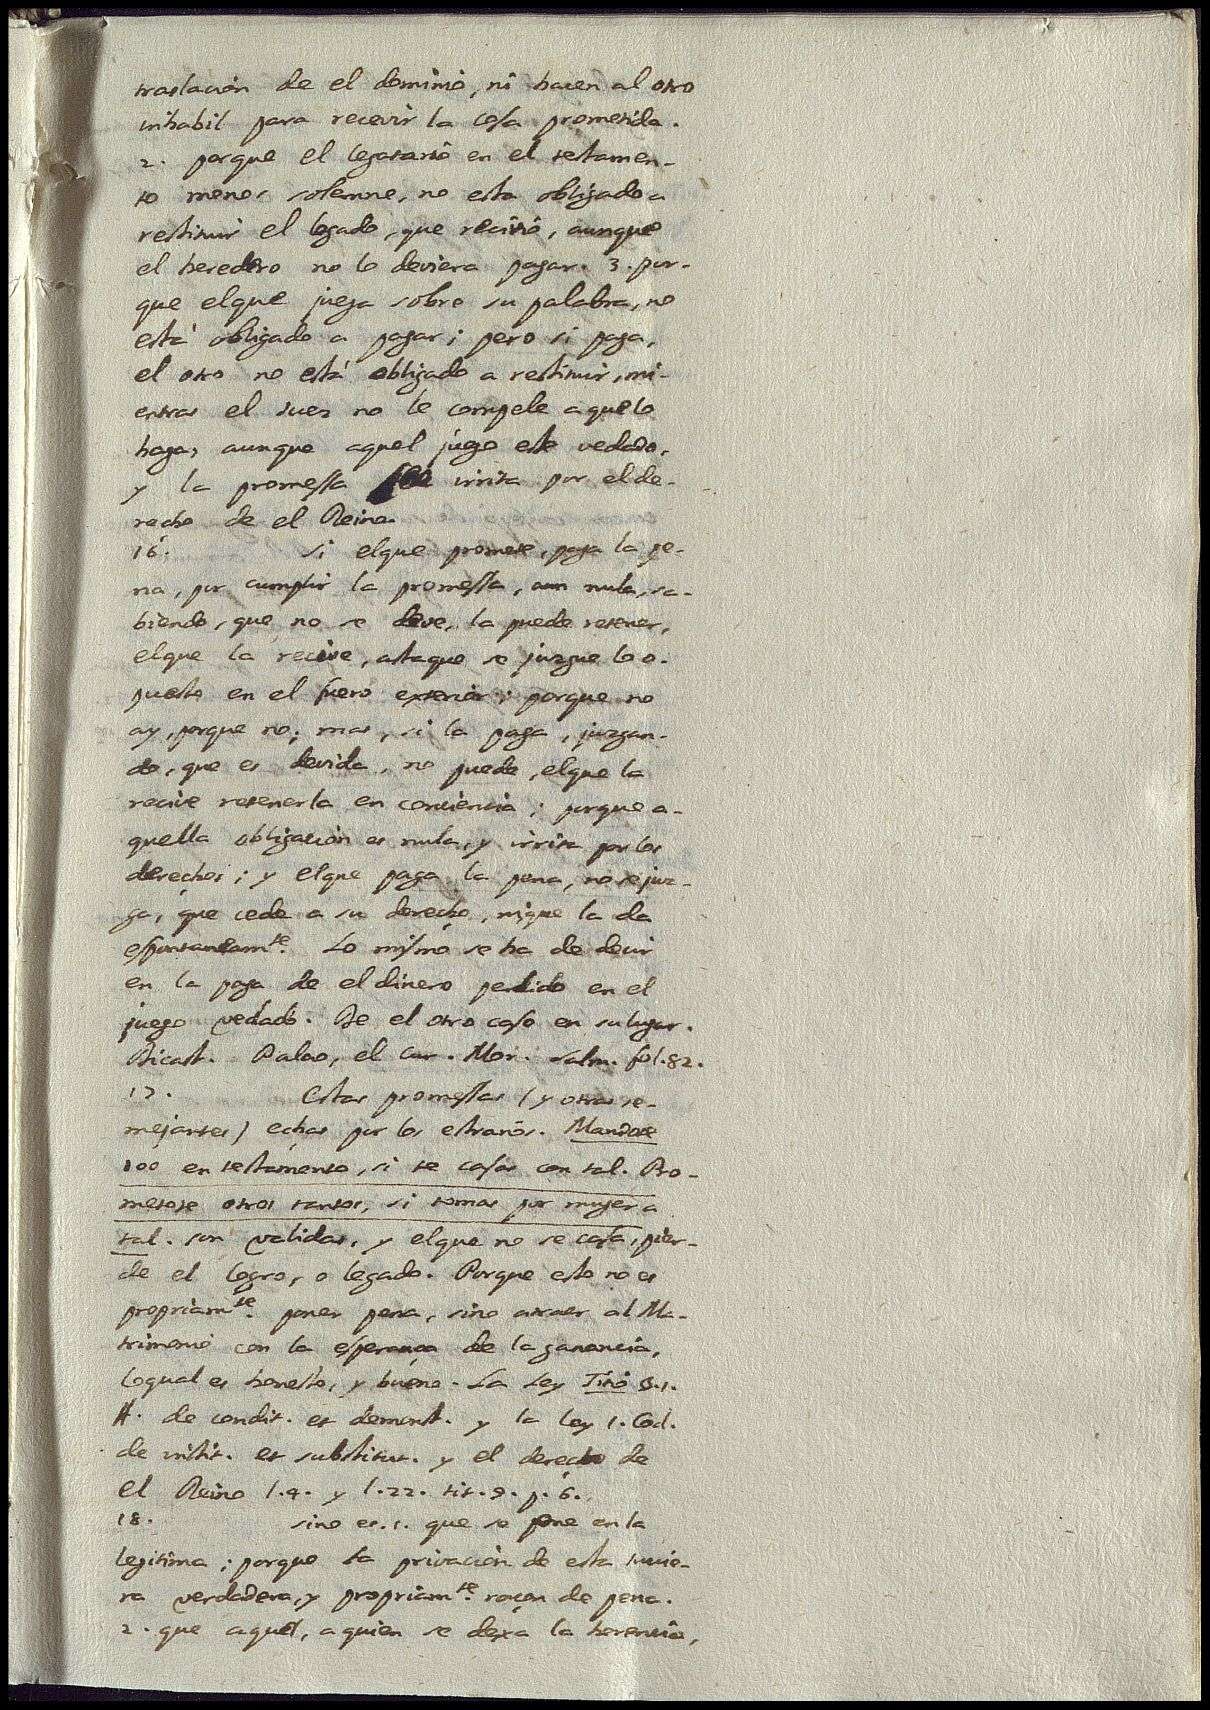 traslación de el dominio, ni hacen al otro
inhabil para recevir la cosa prometida.
2. porque el legatario en el testamen-
to menos solemne, no esta obligado a
restituir el legado, que recivió, aunque
el heredero no lo deviera pagar. 3. por-
que elque juega sobre su palabra, no
está obligado a pagar; pero si paga,
el otro no está obligado a restituir, mi-
entras el Juez no le compele aquelo
haga, aunque aquel juego este vedado,
y la promessa irrita por el de-
recho de el Reino.
16. Si elque promete, paga la pe-
na, por cumplir la promessa, aun nula, sa-
biendo, que no se deve, la puede retener,
elque la recive, astaque se juzgue lo o-
puesto en el fuero exterior; porque no
ay, porque no; mas, si la paga, juzgan-
do, que es devida, no puede, elque la
recive retenerla en conciencia; porque a-
quella obligación es nula, y irrita por los
derechos; y elque paga la pena, no se juz-
ga, que cede a su derecho, nique la da
espontaneamte. Lo mismo se ha de decir
en la paga de el dinero perdido en el
juego vedado. De el otro caso en su lugar.
Dicast. Palao, el Cur. Mor. Salm. fol. 82.
17. Estas promessas (y otras se-
mejantes) echas por los estraños. Mandote
100 en testamento, si te casas con tal. Pro-
metote otros tantos, si tomas por mujer a
tal. son validas, y elque no se casa, pier-
de el logro, o legado. Porque esto no es
propriamte. poner pena, sino atraer al Ma-
trimonio con la esperança de la ganancia,
loqual es honesto, y bueno. La Ley Titio §.1.
ff. de condit. et demonst. y la ley 1. Cod.
de instit. et substitut. y el derecho de
el Reino l.4. y l.22. tit. 9. p. 6.
18. sino es. 1. que se pone en la
legitima; porque la privación de esta tuvie-
ra verdadera, y propriamte. raçon de pena.
2. que aquel, aquien se dexa la herencia,